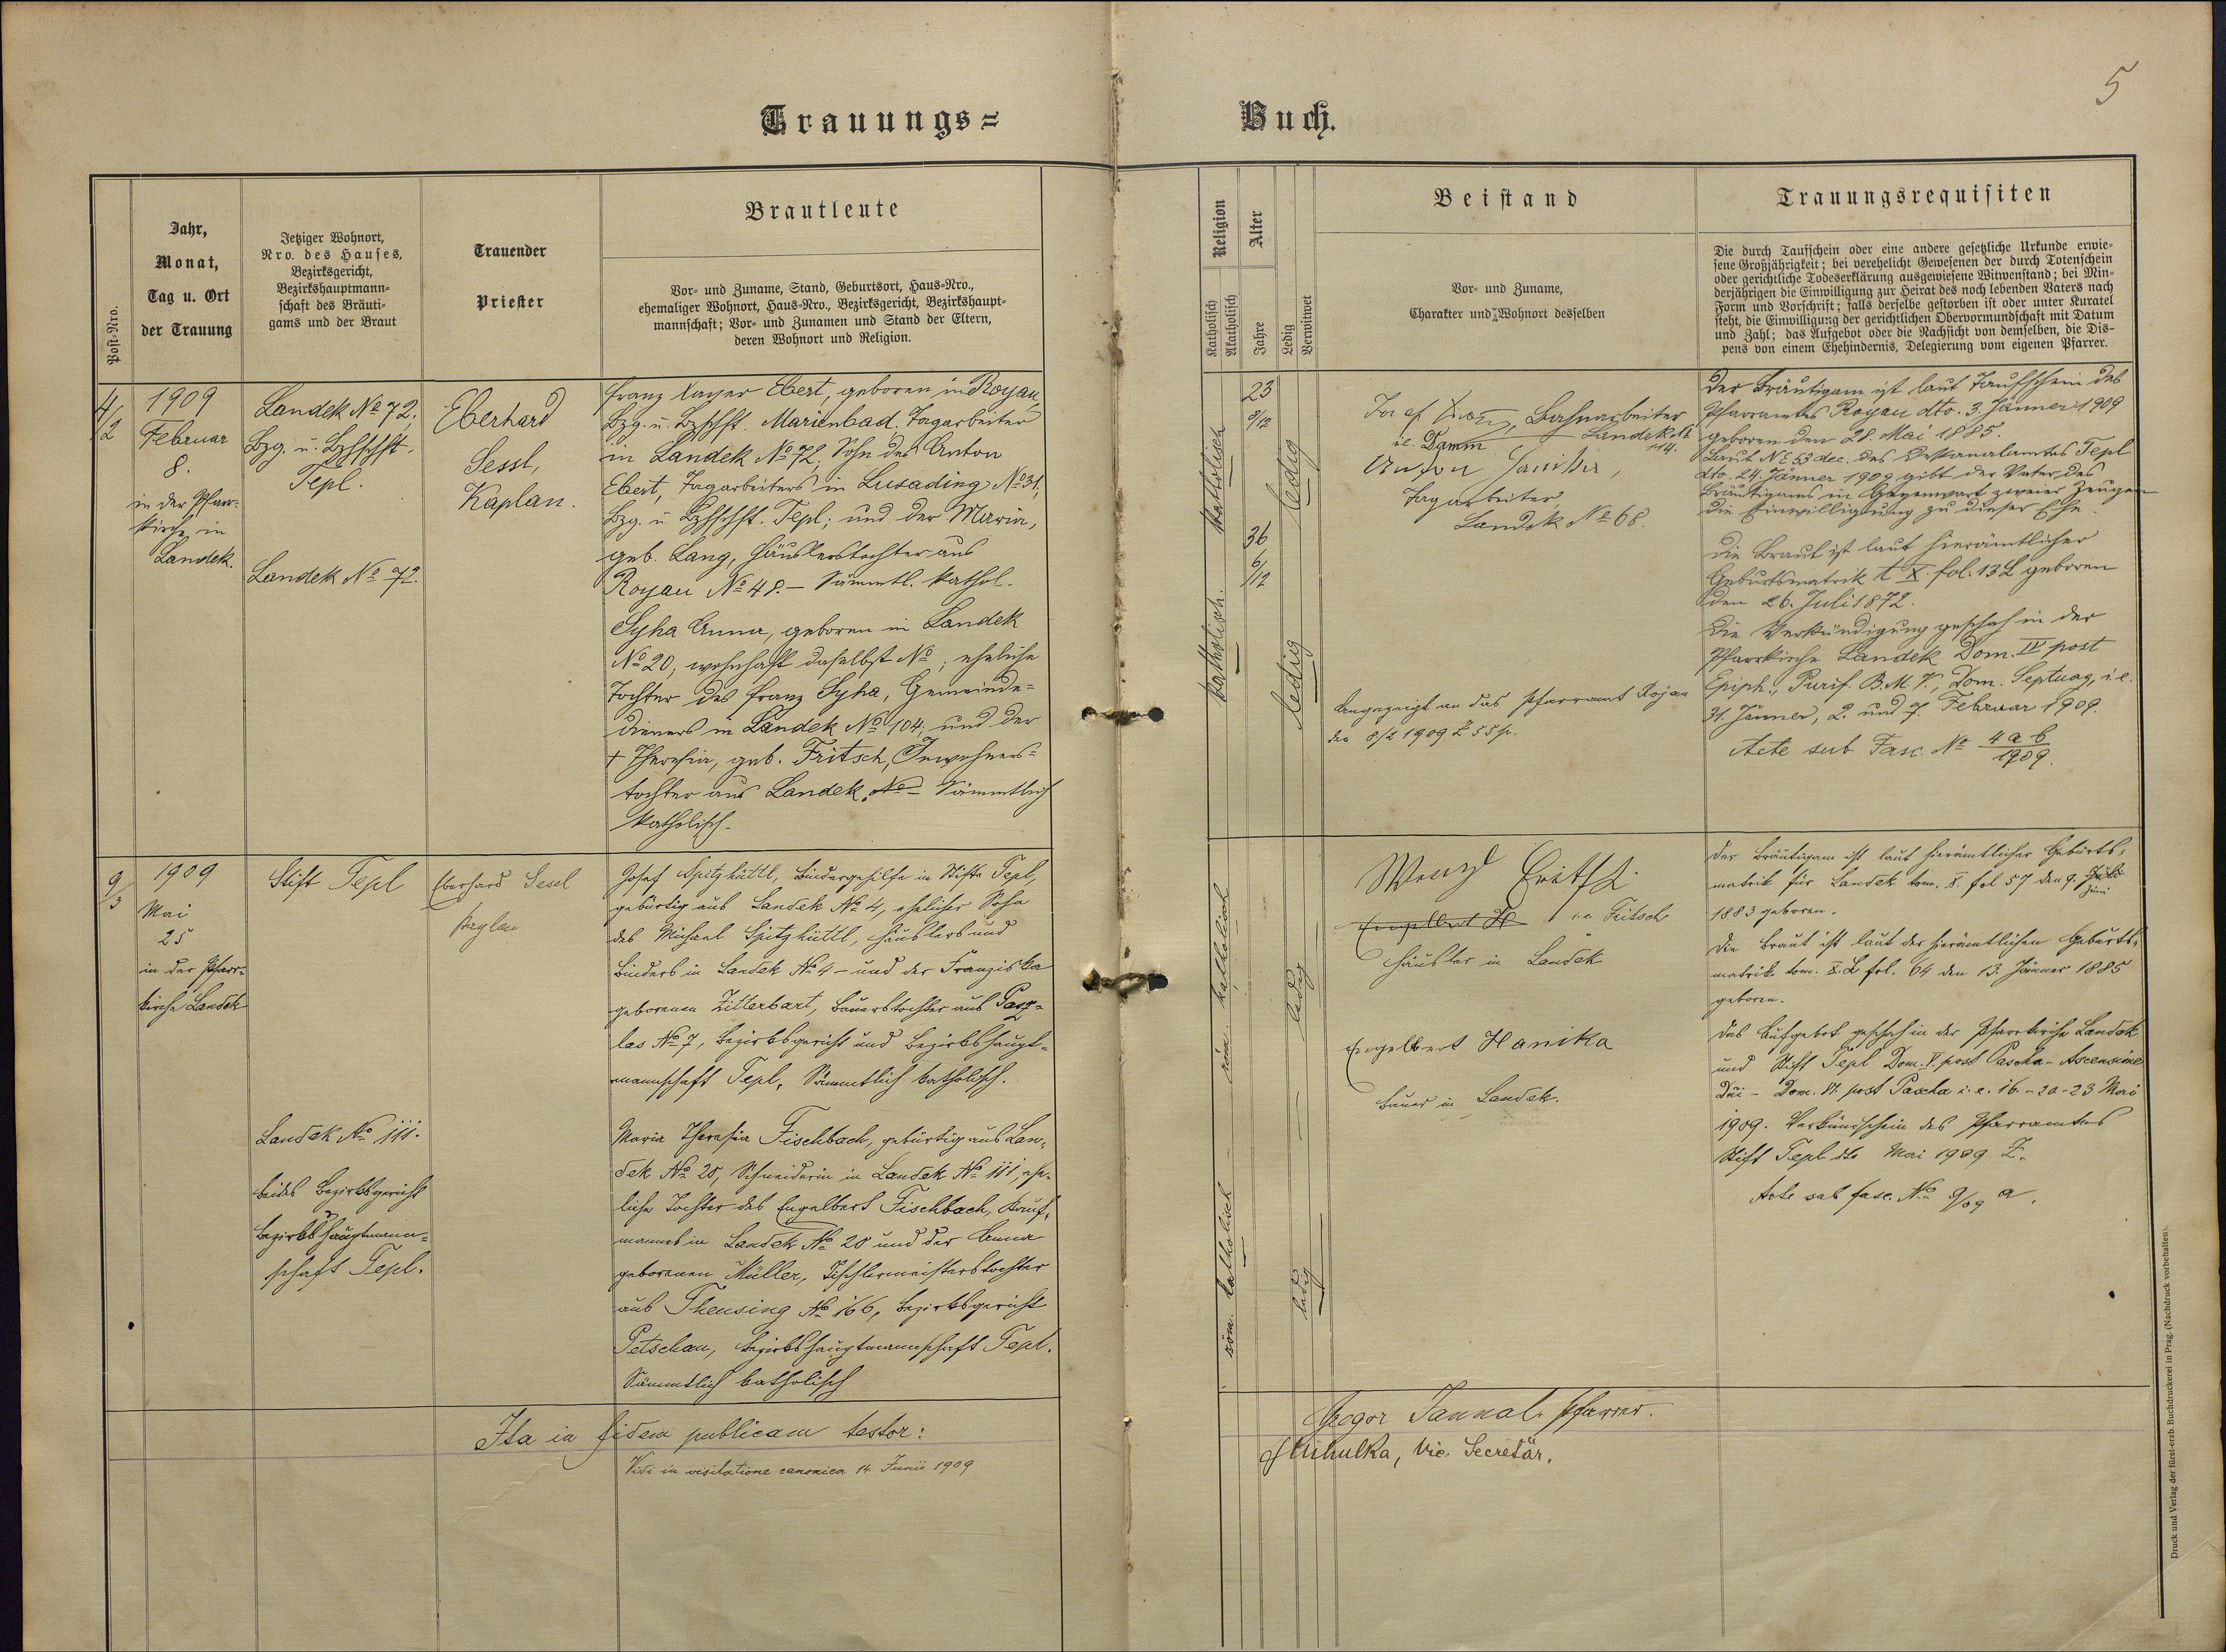 5
Trauungs=
Buch.
Post-Nro.
Jahr,
Monat,
Tag u. Ort
der Trauung
Jetziger Wohnort,
Nro. des Hauses,
Bezirksgericht,
Bezirkshauptmann=
schaft des Bräuti=
gams und der Braut
Trauender
Priester
Brautleute
Vor- und Zuname, Stand, Geburtsort, Haus-Nro.,
ehemaliger Wohnort, Haus-Nro., Bezirksgericht, Bezirkshaupt=
mannschaft; Vor- und Zunamen und Stand der Eltern,
deren Wohnort und Religion.
Religion
Katholisch
Akatholisch
Alter
Jahre
Ledig
Verwitwet
Beistand
Vor- und Zuname,
Charakter und Wohnort desselben
Trauungsrequisiten
Die durch Taufschein oder eine andere gesetzliche Urkunde erwie=
sene Großjährigkeit; bei verehelicht Gewesenen der durch Totenschein
oder gerichtliche Todeserklärung ausgewiesene Witwenstand; bei Min=
derjährigen die Einwilligung zur Heirat des noch lebenden Vaters nach
Form und Vorschrift; falls derselbe gestorben ist oder unter Kuratel
steht, die Einwilligung der gerichtlichen Obervormundschaft mit Datum
und Zahl; das Aufgebot oder die Nachsicht von demselben, die Dis=
pens von einem Ehehindernis, Delegierung vom eigenen Pfarrer.
4/2
1909
Februar
8.
in der Pfarr-
kirche in
Landek.
Landek No 72,
Bzg. u. Bzhschft.
Tepl.
Landek No 72.
Eberhard
Sessl,
Kaplan.
Franz Xaver Ebert, geboren in Royau,
Bzg. u. Bzhschft. Marienbad. Tagarbeiter
in Landek No 72, Sohn des Anton
Ebert, Tagarbeiters in Lusading No 31,
Bzg. u. Bzhschft. Tepl; und der Maria,
geb. Lang, Häuslerstochter aus
Royau No 48. – Sämmtl. kathol.
Syha Anna, geboren in Landek
No 20, wohnhaft daselbst No ; eheliche
Tochter des Franz Syha, Gemeinde=
dieners in Landek No 104, und der
† Theresia, geb. Fritsch, Inwohners=
tochter aus Landek No – Sämmtlich
katholisch.
katholisch
katholisch.
23
8/12
36
6/12
ledig
ledig
Josef Damm, Bahnarbeiter
i.e. Damm Landek No 114.
Anton Hanika,
Tagarbeiter
Landek No 68.
Angezeigt an das Pfarramt Rojau
den 8/2 1909 Z 55 p.
Der Bräutigam ist laut Taufschein des
Pfarramtes Royau dto. 3. Jänner 1909
geboren den 28. Mai 1885.
Laut NE 53 dec. des Dekanalamtes Tepl
dto. 24. Jänner 1909 gibt der Vater des
Bräutigams in Gegenwart zweier Zeugen
die Einwilligung zu dieser Ehe.
Die Braut ist laut hierämtlicher
Geburtsmatrik t X. fol. 13 L geboren
den 26. Juli 1872.
Die Verkündigung geschah in der
Pfarrkirche Landek Dom. IV post
Epiph., Purif. B.M.V., Dom. Septuag, i.e.
31. Jänner, 2. und 7. Februar 1909.
Acte sub Fasc. No 4 a b
1909.
9/3
1909
Mai
25
in der Pfarr-
kirche Landek
Stift Tepl
Landek No 111.
beides Bezirksgericht
Bezirkshauptmann=
schaft Tepl.
Eberhard Sessl
Kaplan
Josef Spitzhüttl, Bindergehilfe in Stifte Tepl,
gebürtig aus Landek No 4, ehelicher Sohn
des Michael Spitzhüttl, Häuslers und
Binders in Landek No 4 – und der Franziska
geborenen Zitterbart, Bauerstochter aus Pasch=
las No 7, Bezirksgericht und Bezirkshaupt=
mannschaft Tepl. Sämmtlich katholisch.
Maria Theresia Fischbach, gebürtig aus Lan-
dek No 20, Schneiderin in Landek No 111, ehe-
liche Tochter des Engelbert Fischbach, Kauf-
manns in Landek No 20 und der Anna
geborenen Müller, Tischlermeisterstochter
aus Theusing No 166, Bezirksgericht
Petschau, Bezirkshauptmannschaft Tepl.
Sämmtlich katholisch
röm. katholisch
röm. katholisch
ledig
ledig
Wenzl Fritsch
Engelbert H i.e. Fritsch
Häusler in Landek
Engelbert Hanika
Bauer in Landek.
Der Bräutigam ist laut hierämtlicher Geburts-
matrik für Landek tom. X. fol 57 den 9. Juli
Juni
1883 geboren.
Die Braut ist laut der hierämtlichen Geburts-
matrik tom. X. L fol. 64 den 13. Jänner 1885
geboren.
Das Aufgebot geschah in der Pfarrkirche Landek
und Stift Tepl Dom. V. post Pascha – Ascensione
Dni – Dom. VI. post Pascha i. e. 16 – 20 – 23 Mai
1909. Verkündschein des Pfarramtes
Stift Tepl dto Mai 1909 Z.
Acte sub fasc. No 9/09 a.
Ita in fidem publicam testor:
Vidi in visitatione canonica 14. Junii 1909
Gregor Pfarrer.
Mihulka, Vic. Secretär.
Druck und Verlag der fürst-erzb. Buchdruckerei in Prag. (Nachdruck vorbehalten).